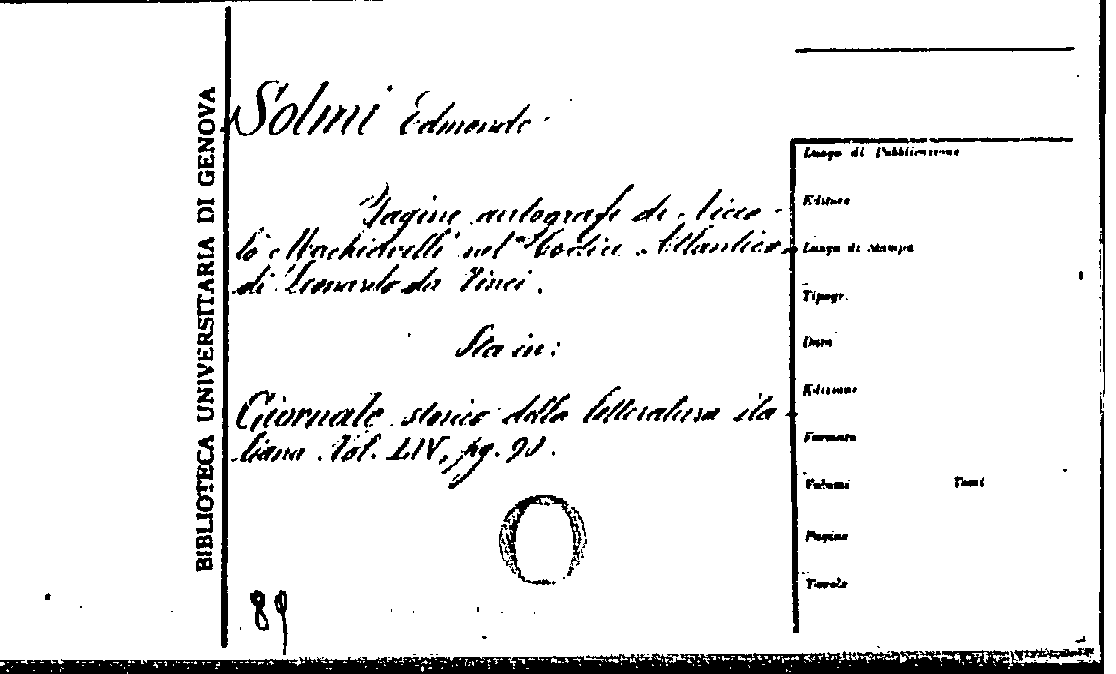 BIBLIOTECA UNIVERSITARIA DI GENOVA
Solmi Edmondo
Pagine autografe di Nicco-
lò Machiavelli nel "Codice Atlantico"
di Leonardo da Vinci.
Sta in:
Giornale storico della letteratura ita-
liana. Vol. LIV, pg. 90.
89
Luogo di Pubblicazione
Editore
Luogo di Stampa
Tipogr.
Data
Edizione
Formato
Volumi Tomi
Pagine
Tavole